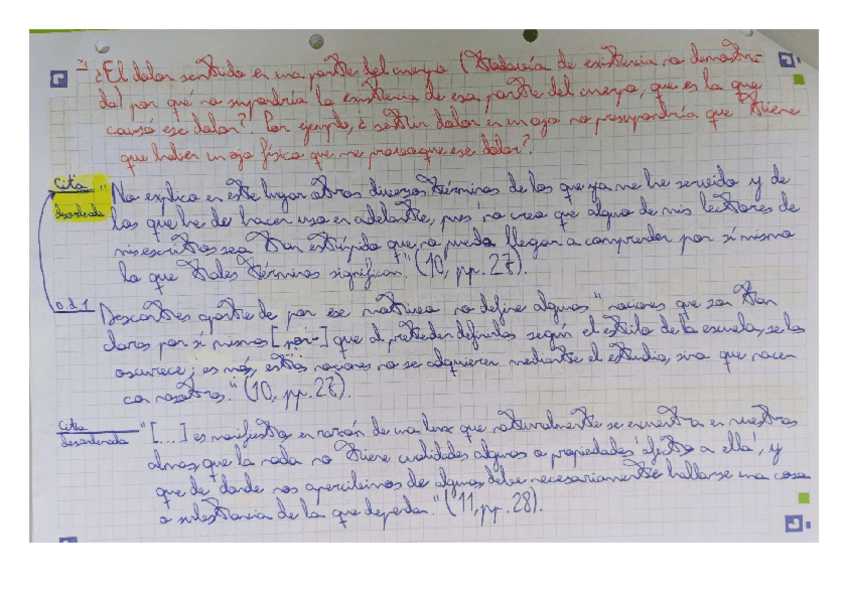 ¿El dolor sentido en una parte del cuerpo (todavía de existencia no demostra-
da) por qué no supondría la existencia de esa parte del cuerpo, que es la que
causó ese dolor? Por ejemplo, ¿sentir dolor en un ojo no presupondría que tiene
que haber un ojo físico que me provoque ese dolor?
Cita
desordenada
"No explico en este lugar otros diversos términos de los que ya me he servido y de
los que he de hacer uso en adelante, pues no creo que alguno de mis lectores de
mis escritos sea tan estúpido que no pueda llegar a comprender por sí mismo
lo que tales términos significan." (10, pp. 27).
o.d.1
Descartes aparte de por ese motivo no define algunas "nociones que son tan
claras por sí mismas [por-] que al pretender definirlas según el estilo de la escuela, se las
oscurece; es más, estas nociones no se adquieren mediante el estudio, sino que nacen
con nosotros." (10, pp. 27).
Cita
desordenada
"[...] es manifiesto en razón de una luz que naturalmente se encuentra en nuestras
almas, que la nada no tiene cualidades algunas o propiedades 'afectas a ella', y
que de donde nos apercibimos de algunas debe necesariamente hallarse una cosa
o substancia de la que dependan." (11, pp. 28).